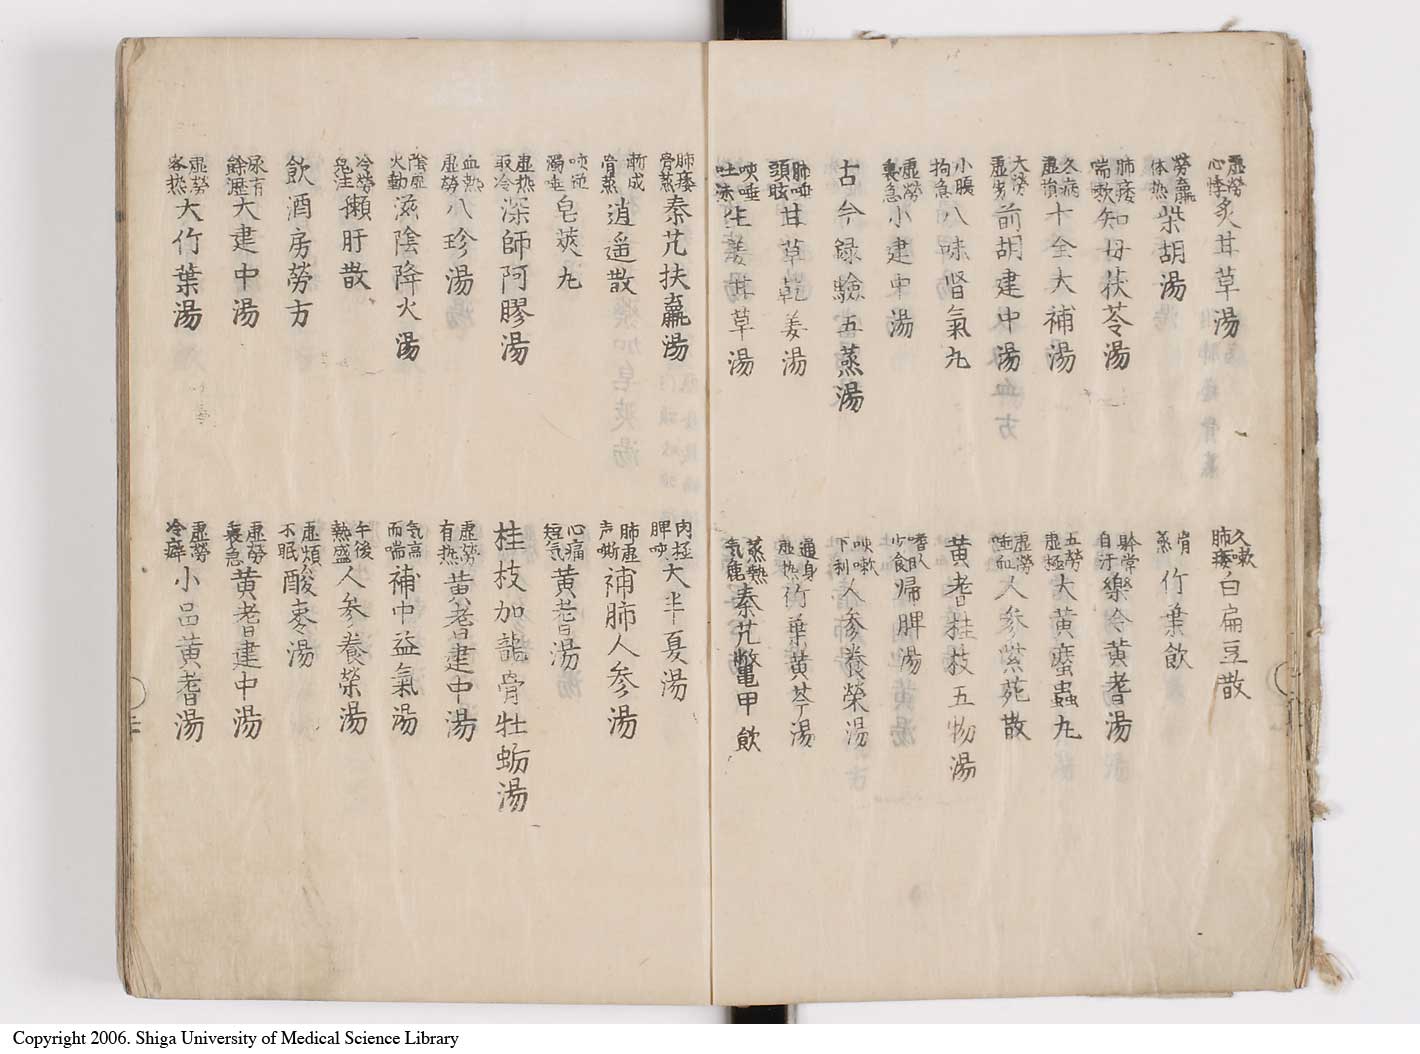 虚勞心悸炙甘草湯
勞羸体热柴胡湯
肺痿喘欬知母茯苓湯
久病虚損十全大補湯
大勞虚劣前胡建中湯
小腹拘急八味腎氣丸
虚勞裏急小建中湯
古今録驗五蒸湯
肺唾頭眩甘草乾姜湯
咳唾吐沫生姜甘草湯
久嗽肺痿白扁豆散
骨蒸竹葉飲
聆常自汗樂令黄耆湯
五勞虚極大黄䗪蟲丸
虚勞唾血人参紫菀散
黄耆桂枝五物湯
嗜臥少食帰脾湯
咳嗽下利人参養榮湯
遍身虚热竹葉黄芩湯
蒸熱氣麁秦艽鱉甲飲
肺痿骨蒸秦艽扶羸湯
漸成骨蒸逍遥散
咳逆濁唾皂莢丸
虚热取冷深師阿膠湯
血热虚勞八珍湯
陰虚火動滋陰降火湯
冷勞鬼注獺肝散
飲酒房勞方
尿有餘瀝大建中湯
虚勞客热大竹葉湯
肉極脾咳大半夏湯
肺虚声嘶補肺人参湯
心痛短気黄耆湯
桂枝加龍骨牡蛎湯
虚勞有热黄耆建中湯
気高而喘補中益氣湯
午後熱盛人参養榮湯
虚煩不眠酸棗湯
虚勞裏急黄耆建中湯
虚勞冷癖小品黄耆湯
Copyright 2006. Shiga University of Medical Science Library